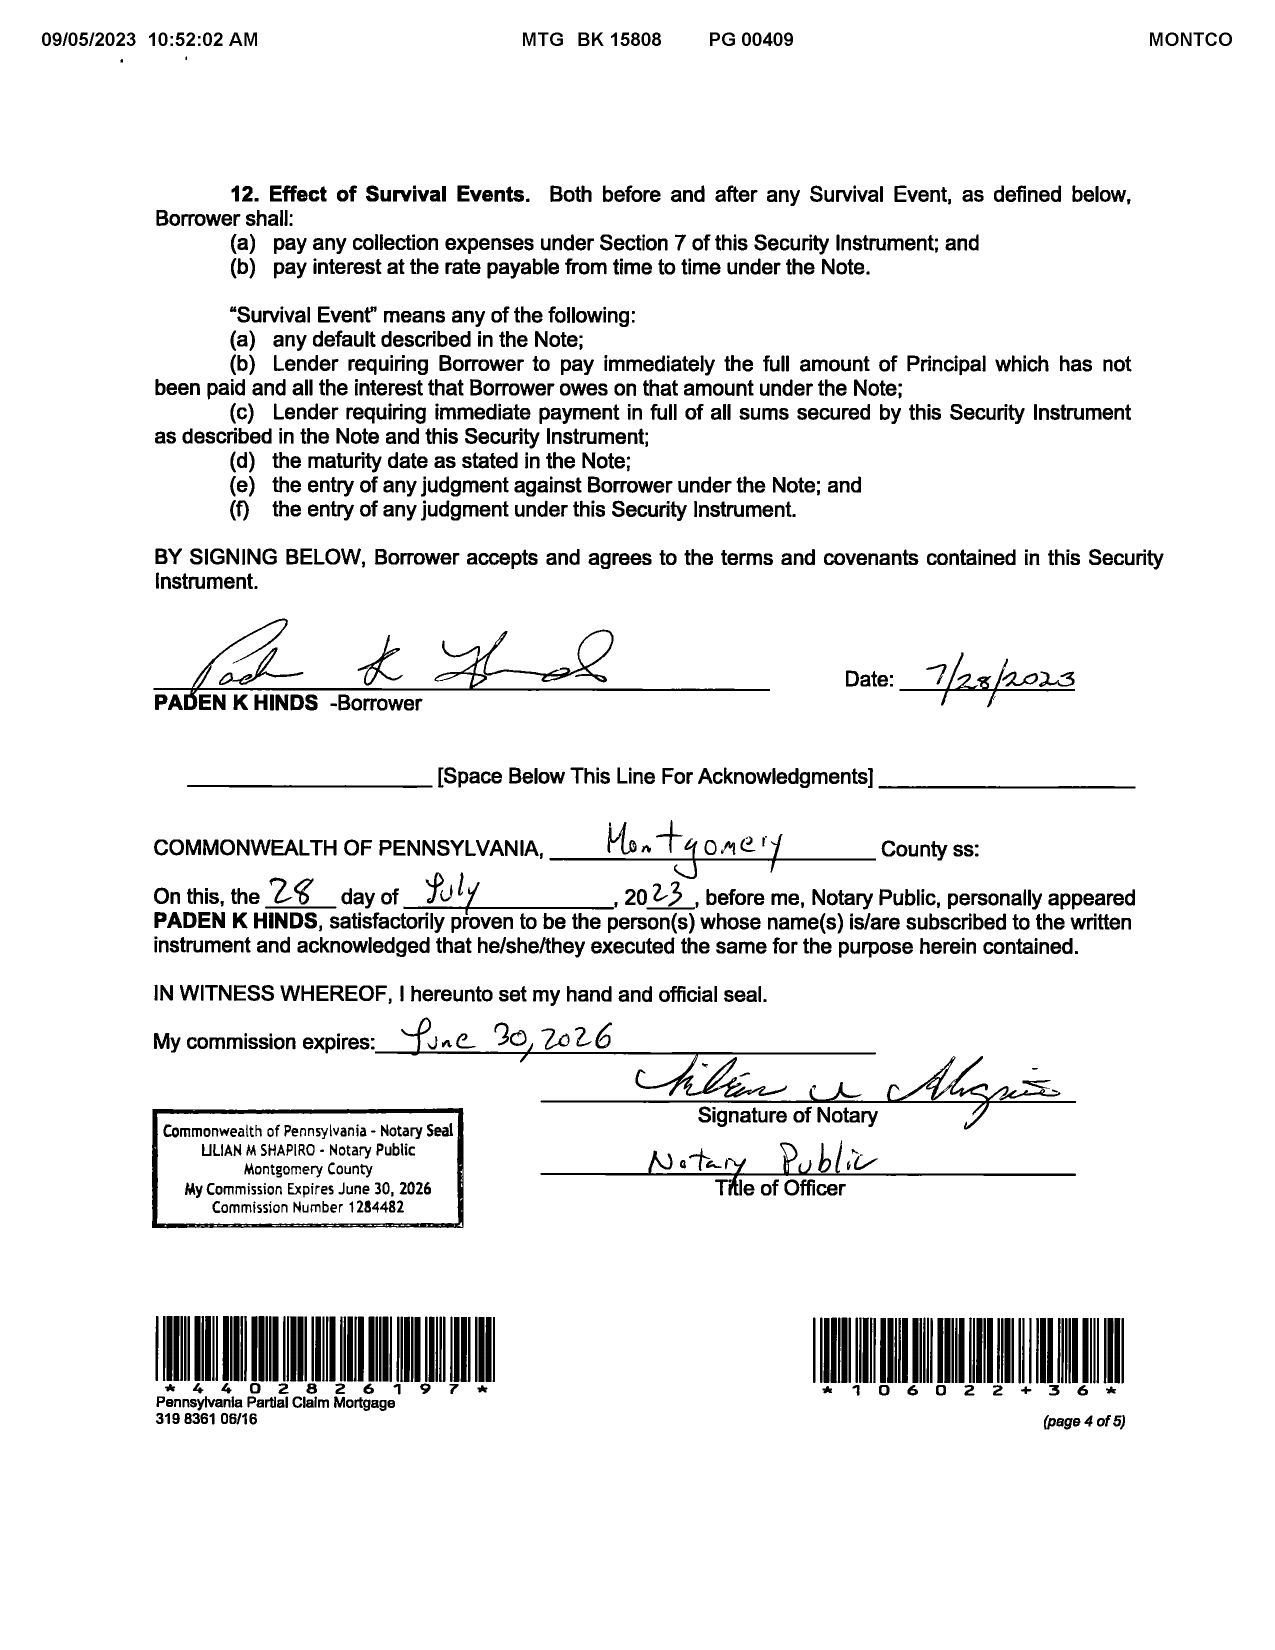 09/05/2023 10:52:02 AM MTG BK 15808 PG 00409 MONTCO
12. Effect of Survival Events. Both before and after any Survival Event, as defined below,
Borrower shall:
(a) pay any collection expenses under Section 7 of this Security Instrument; and
(b) pay interest at the rate payable from time to time under the Note.
“Survival Event” means any of the following:
(a) any default described in the Note;
(b) Lender requiring Borrower to pay immediately the full amount of Principal which has not
been paid and all the interest that Borrower owes on that amount under the Note;
(c) Lender requiring immediate payment in full of all sums secured by this Security Instrument
as described in the Note and this Security Instrument;
(d) the maturity date as stated in the Note;
(e) the entry of any judgment against Borrower under the Note; and
(f) the entry of any judgment under this Security Instrument.
BY SIGNING BELOW, Borrower accepts and agrees to the terms and covenants contained in this Security
Instrument.
Paden K Hinds Date: 7/28/2023
PADEN K HINDS -Borrower
[Space Below This Line For Acknowledgments]
COMMONWEALTH OF PENNSYLVANIA, Montgomery County ss:
On this, the 28 day of July, 2023, before me, Notary Public, personally appeared
PADEN K HINDS, satisfactorily proven to be the person(s) whose name(s) is/are subscribed to the written
instrument and acknowledged that he/she/they executed the same for the purpose herein contained.
IN WITNESS WHEREOF, I hereunto set my hand and official seal.
My commission expires: June 30, 2026
Signature of Notary
Notary Public
Title of Officer
Commonwealth of Pennsylvania - Notary Seal
LILIAN M SHAPIRO - Notary Public
Montgomery County
My Commission Expires June 30, 2026
Commission Number 1284482
*4402826197* *106022+36*
Pennsylvania Partial Claim Mortgage
319 8361 06/16 (page 4 of 5)